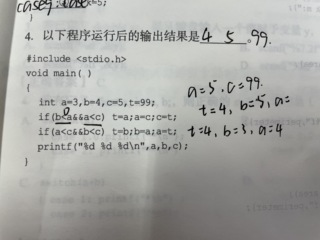 case
4. 以下程序运行后的输出结果是 4 5 .99.
#include <stdio.h>
void main( )
{
int a=3,b=4,c=5,t=99;
if(b<a&&a<c) t=a;a=c;c=t;
if(a<c&&b<c) t=b;b=a;a=t;
printf("%d %d %d\n",a,b,c);
}
a=5, c=99.
t=4, b=5, a=
t=4, b=3, a=4